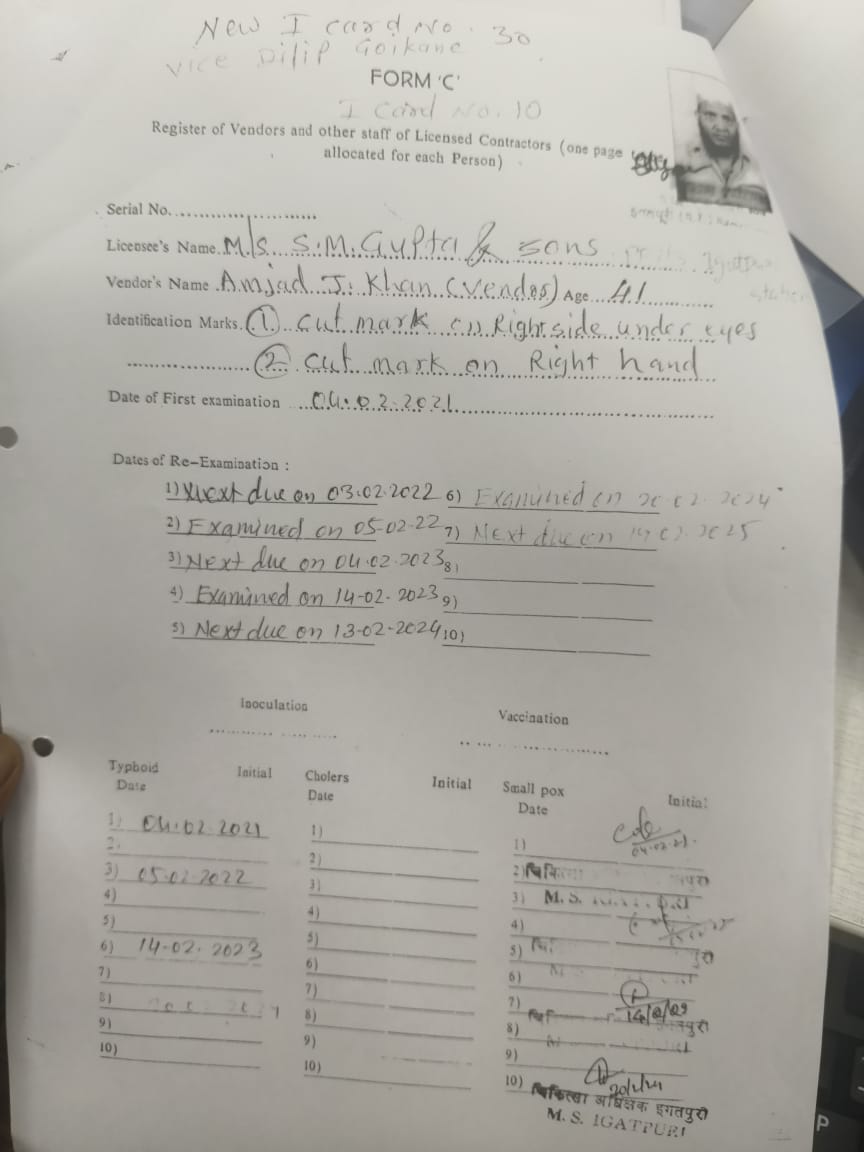 New I card No. 30
vice Dilip Goikane
FORM 'C'
I Card No. 10
Register of Vendors and other staff of Licensed Contractors (one page
allocated for each Person)
Serial No.
Licensee's Name M/s. S.M. Gupta & sons
Vendor's Name Amjad J. Khan (Vendor) Age 41
Identification Marks. ① cut mark on Right side under eyes
② cut mark on Right hand
Date of First examination 04.02.2021
Dates of Re-Examination :
1) Next due on 03.02.2022 6) Examined on 20.02.2024
2) Examined on 05-02-22 7) Next due on 19.02.2025
3) Next due on 04.02.2023 8)
4) Examined on 14-02-2023 9)
5) Next due on 13-02-2024 10)
Inoculation Vaccination
Typhoid Initial Cholers Initial Small pox Initial
Date Date Date
1) 04.02.2021 1) 1) 04.02.21
2. 2) 2)
3) 05.02.2022 3) 3) M. S.
4) 4) 4)
5) 5) 5)
6) 14-02-2023 6) 6)
7) 7) 7)
8) 8) 8)
9) 9) 9)
10) 10) 10)
चिकित्सा अधिक्षक इगतपुरी
M. S. IGATPURI
P